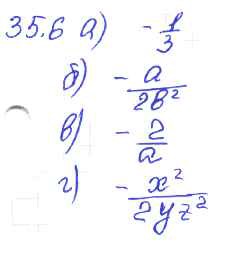 35.6 а) - 1/3
б) - a/2b²
в) - 2/a
г) - x²/2yz²